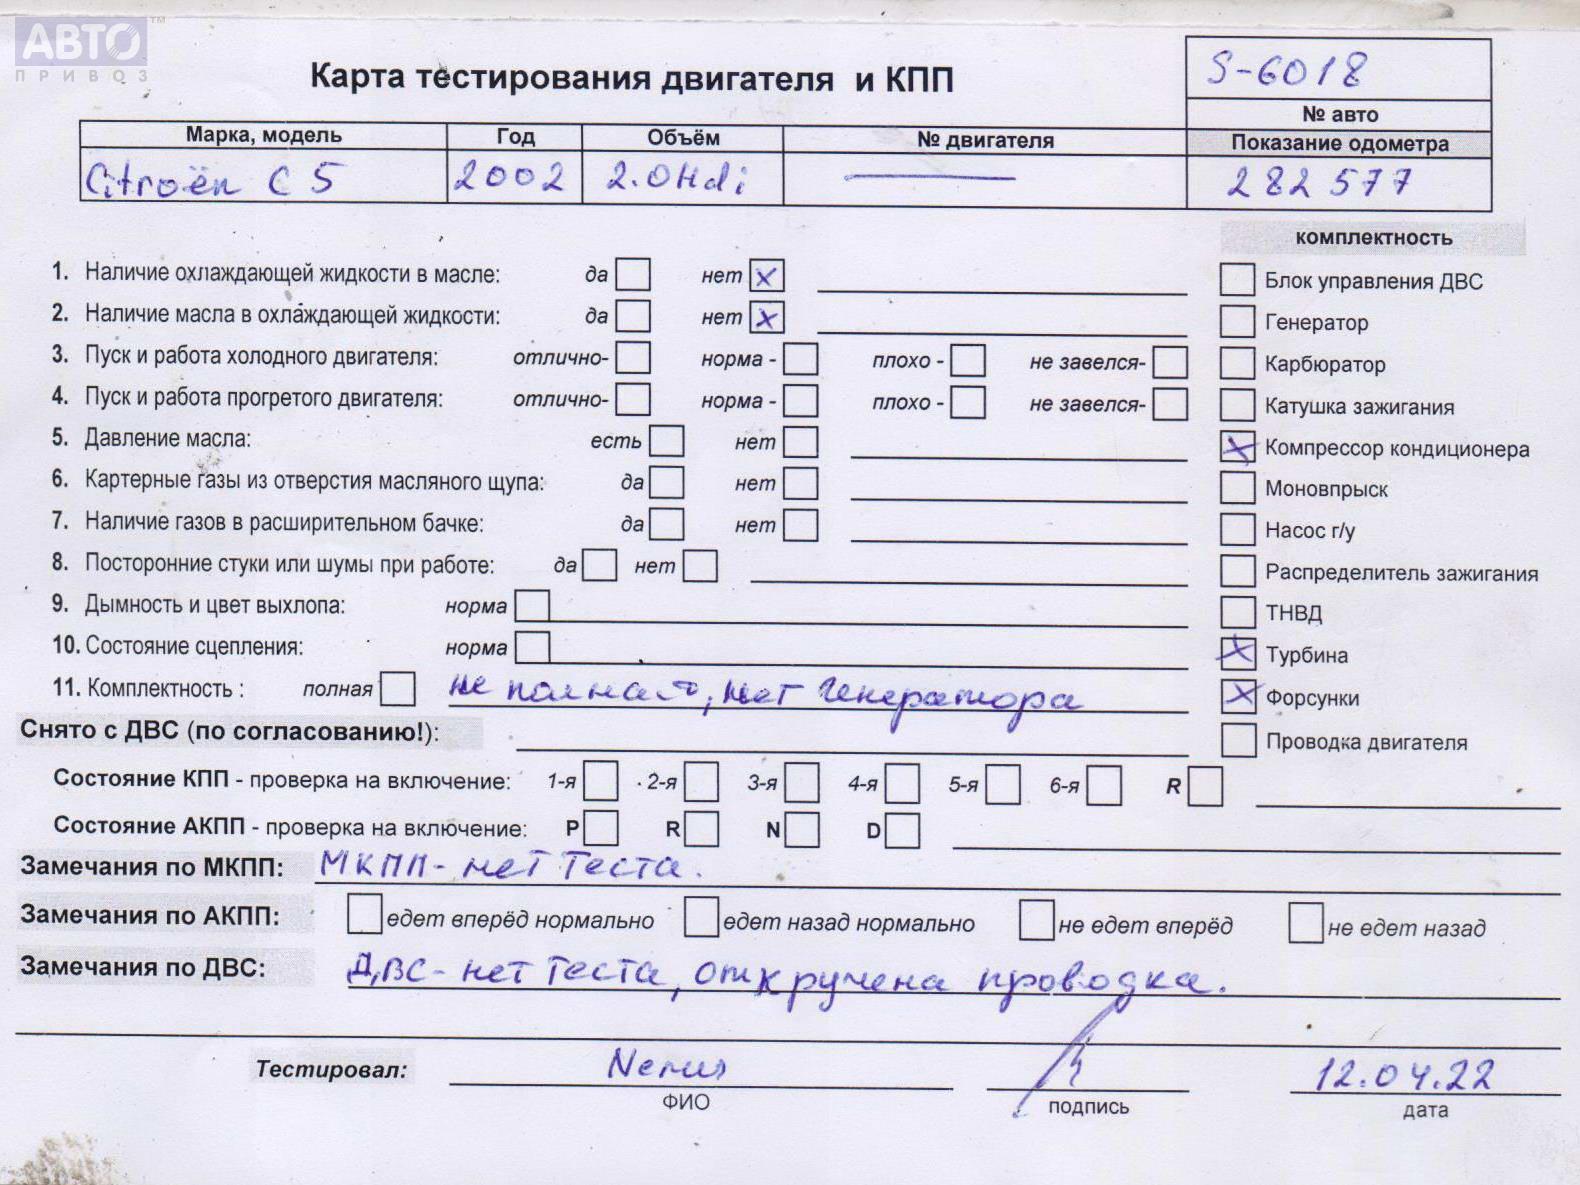 АВТО ™
ПРИВОЗ
Карта тестирования двигателя и КПП
S-6018
№ авто
Марка, модель Год Объём № двигателя Показание одометра
Citroën C5 2002 2.0Hdi — 282 577
комплектность
1. Наличие охлаждающей жидкости в масле: да нет x
Блок управления ДВС
2. Наличие масла в охлаждающей жидкости: да нет x
Генератор
3. Пуск и работа холодного двигателя: отлично- норма - плохо - не завелся-
Карбюратор
4. Пуск и работа прогретого двигателя: отлично- норма - плохо - не завелся-
Катушка зажигания
5. Давление масла: есть нет
x Компрессор кондиционера
6. Картерные газы из отверстия масляного щупа: да нет
Моновпрыск
7. Наличие газов в расширительном бачке: да нет
Насос г/у
8. Посторонние стуки или шумы при работе: да нет
Распределитель зажигания
9. Дымность и цвет выхлопа: норма
ТНВД
10. Состояние сцепления: норма
x Турбина
11. Комплектность : полная не полная, нет генератора
x Форсунки
Снято с ДВС (по согласованию!):
Проводка двигателя
Состояние КПП - проверка на включение: 1-я 2-я 3-я 4-я 5-я 6-я R
Состояние АКПП - проверка на включение: P R N D
Замечания по МКПП: МКПП - нет теста.
Замечания по АКПП: едет вперёд нормально едет назад нормально не едет вперёд не едет назад
Замечания по ДВС: ДВС - нет теста, откручена проводка.
Тестировал: 12.04.22
ФИО подпись дата